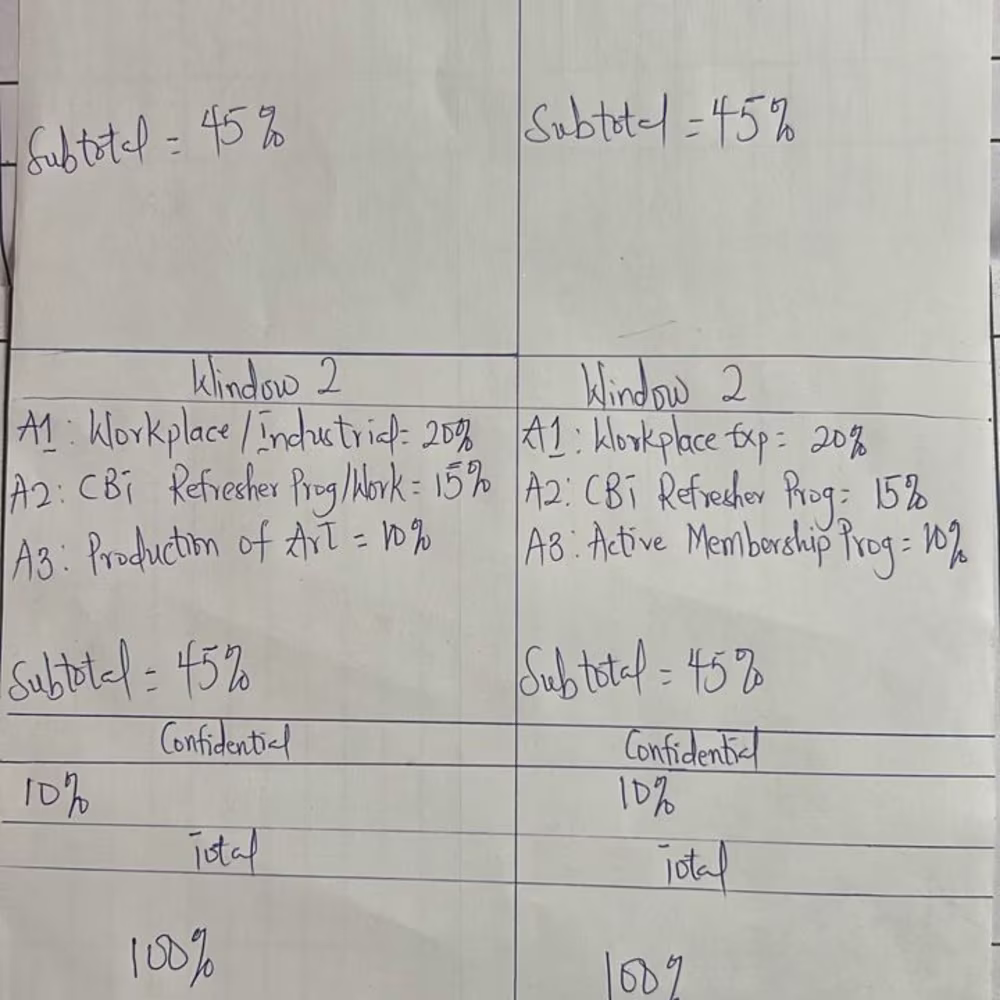 Subtotal = 45%
Subtotal = 45%
Window 2
A1: Workplace/Industrial = 20%
A2: CBI Refresher Prog/Work = 15%
A3: Production of Art = 10%
Subtotal = 45%
Confidential
10%
Total
100%
Window 2
A1: Workplace Exp = 20%
A2: CBI Refresher Prog = 15%
A3: Active Membership Prog = 10%
Subtotal = 45%
Confidential
10%
Total
100%